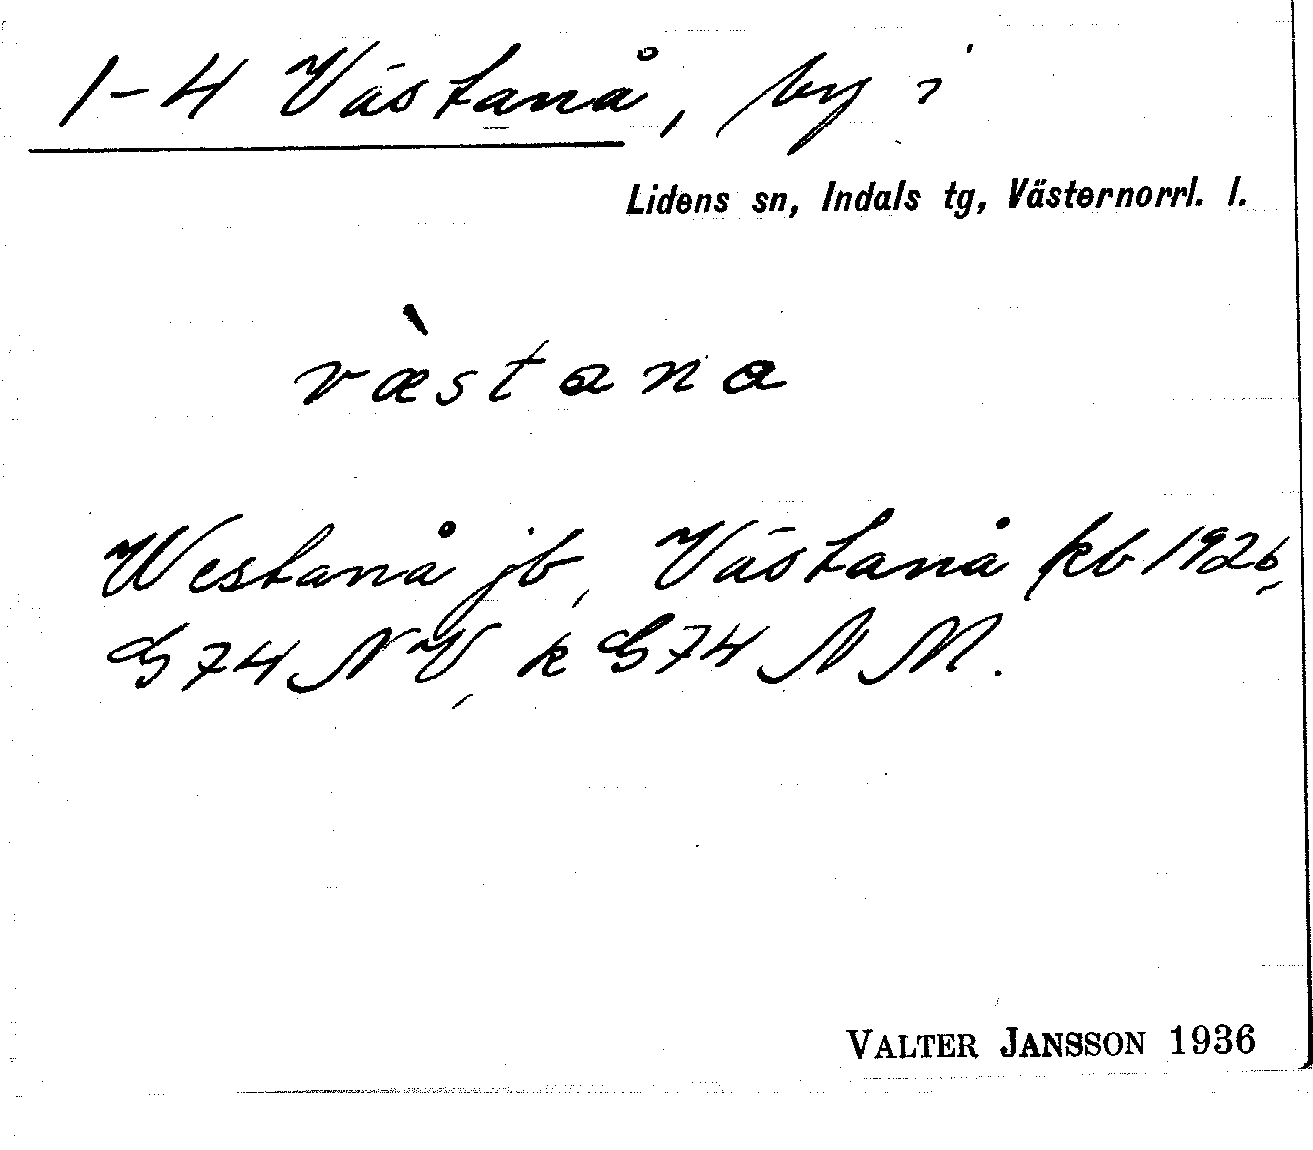 1-4 Västanå, by i
Lidens sn, Indals tg, Västernorrl. l.
væ̀stana
Westanå jb, Västanå kb 1926,
G74 NV, k G74 NM.
VALTER JANSSON 1936